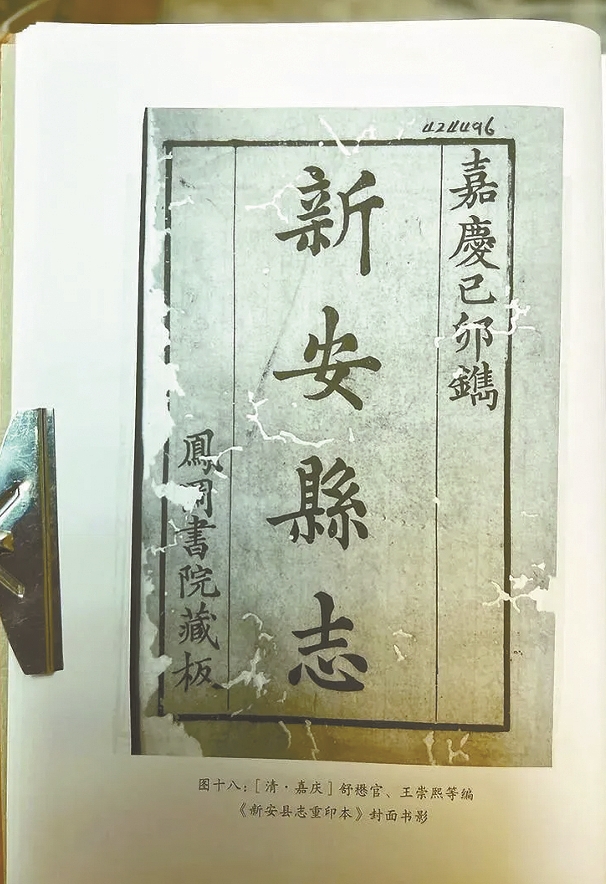 424496
嘉慶己卯鐫
新安縣志
鳳岡書院藏板
图十八：[清·嘉庆] 舒懋官、王崇熙等编
《新安县志重印本》封面书影